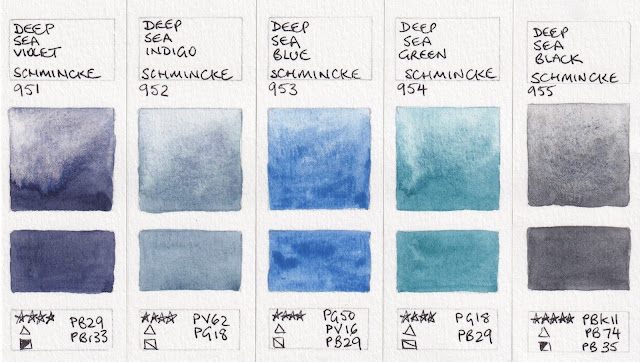 DEEP
SEA
VIOLET
SCHMINCKE
951
PB29
PBr33
DEEP
SEA
INDIGO
SCHMINCKE
952
PV62
PG18
DEEP
SEA
BLUE
SCHMINCKE
953
PG50
PV16
PB29
DEEP
SEA
GREEN
SCHMINCKE
954
PG18
PB29
DEEP
SEA
BLACK
SCHMINCKE
955
PBk11
PB74
PB35